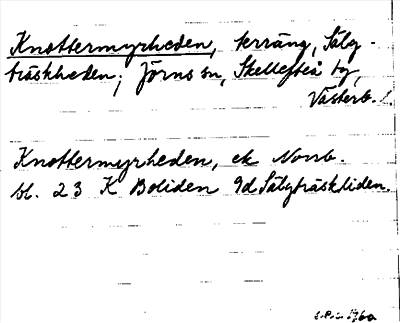 Knottermyrheden, terräng, Sälg-
träskheden; Jörns sn, Skellefteå tg,
Västerb. l.
Knottermyrheden, ek Norrb.
bl. 23 K Boliden 9d Sälgträskliden.
1960